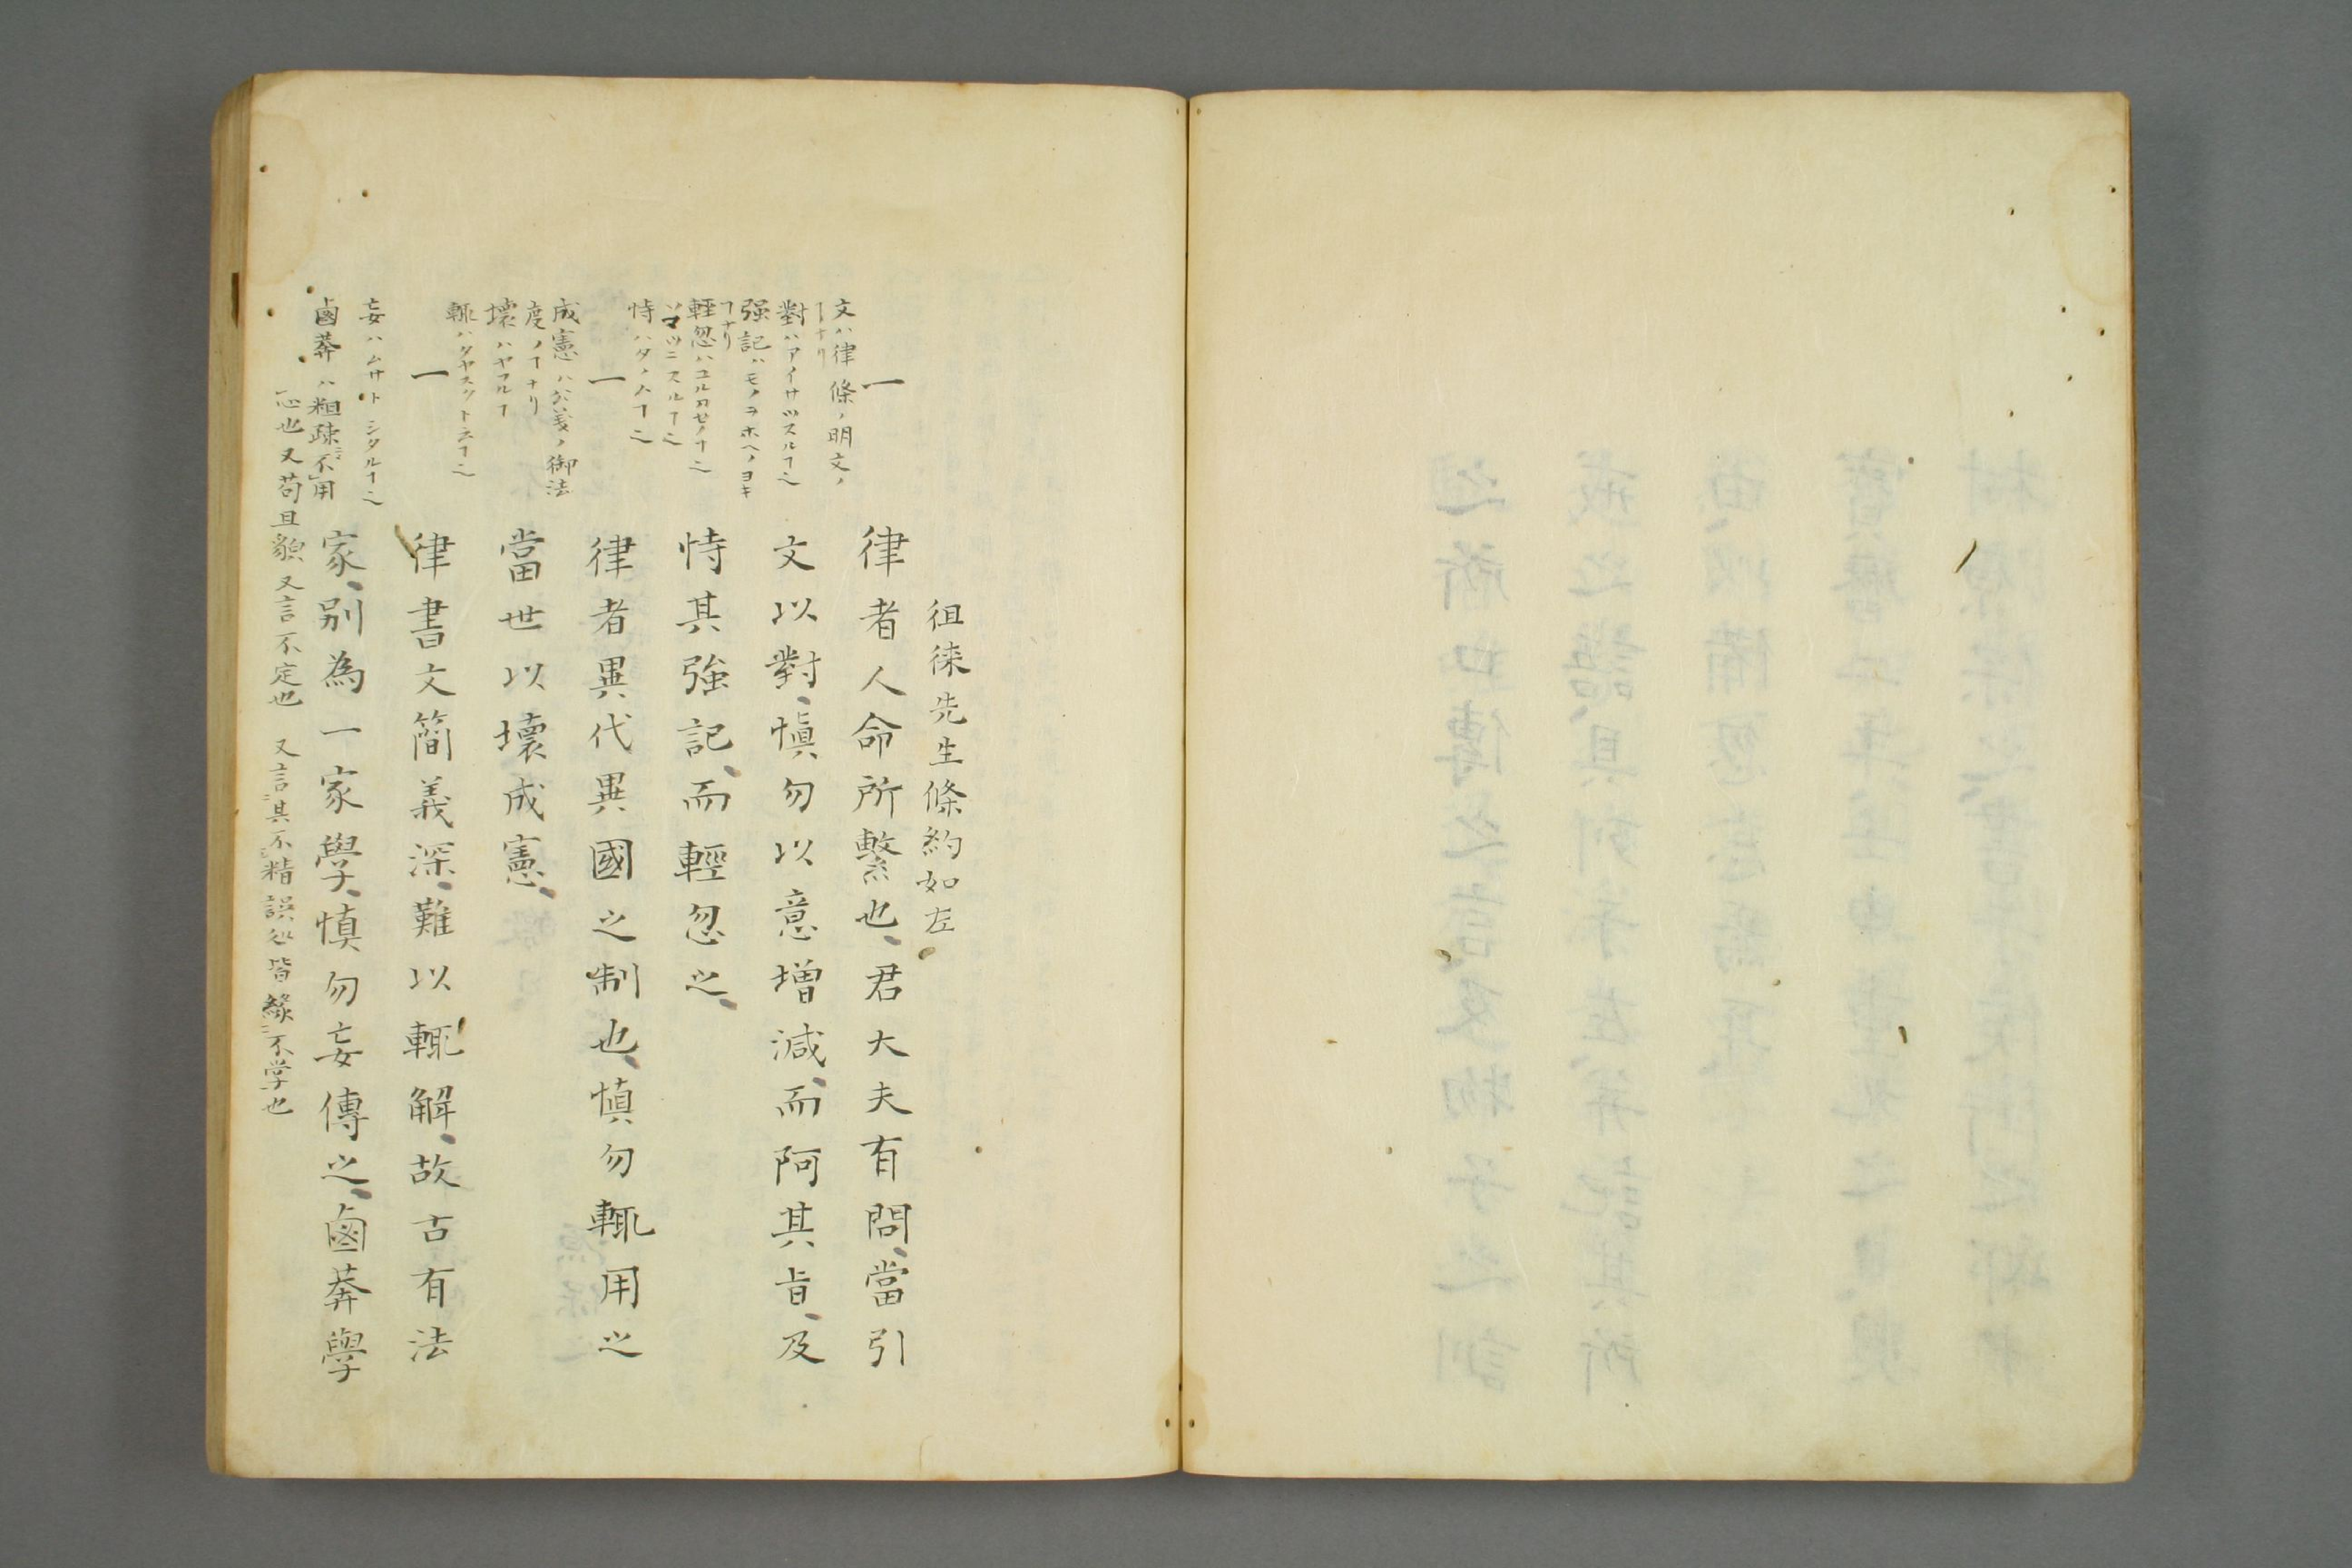 徂徠先生條約如左
一
律者人命所繫也、君大夫有問、當引
文以對、愼勿以意增減、而阿其旨、及
恃其強記、而輕忽之、
一
律者異代異國之制也、慎勿輙用之
當世以壞成憲、
一
律書文簡義深、難以輙解、故古有法
家、別為一家學、慎勿妄傳之、鹵莽學
文ハ律條ノ明文ノ
ヿナリ
對ハアイサツスルヿ也
强記ハモノヲホヘノヨキ
ヿナリ
輕忽ハユルカセノ
恃ハタノムヿ也
成憲ハ公義ノ御法
度ノヿナリ
壞ハヤフルヿ
輙ハタヤスクト云ヿ也
妄ハムサトシタルヿ也
鹵莽ハ粗疎不用
心也又苟且貌又言不定也 又言其不精誤処皆緣不学也